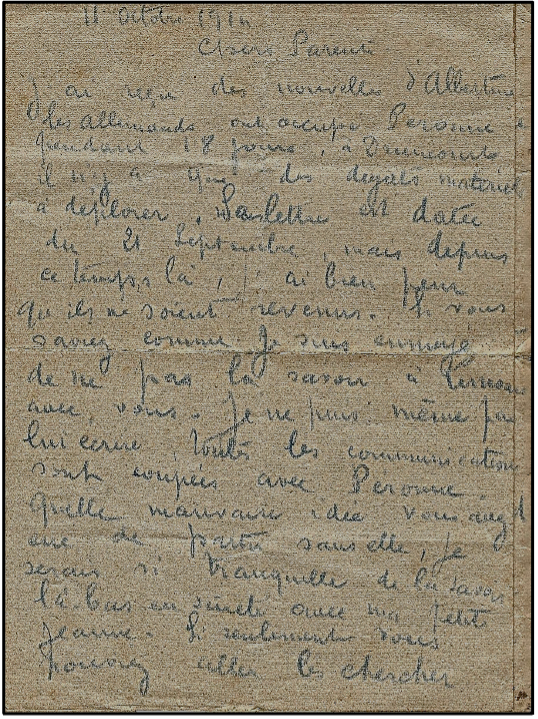 11 Octobre 1914
Chers Parents
j'ai reçu des nouvelles d'Albertine
les allemands ont occupé Peronne
pendant 18 jours, à
il n'y a que des dégats matériel
à déplorer. Sa lettre est datée
du 21 Septembre, mais depuis
ce temps là, j'ai bien peur
qu'ils ne soient revenus. Si vous
saviez comme je suis ennuyé
de ne pas la savoir à
avec vous. Je ne puis même pas
lui écrire, toutes les communications
sont coupées avec Peronne.
Quelle mauvaise idée vous avez
eue de partir sans elle, je
serais si tranquille de la savoir
là-bas en sureté avec ma petite
Jeanne. Si seulement vous
pouviez aller les chercher